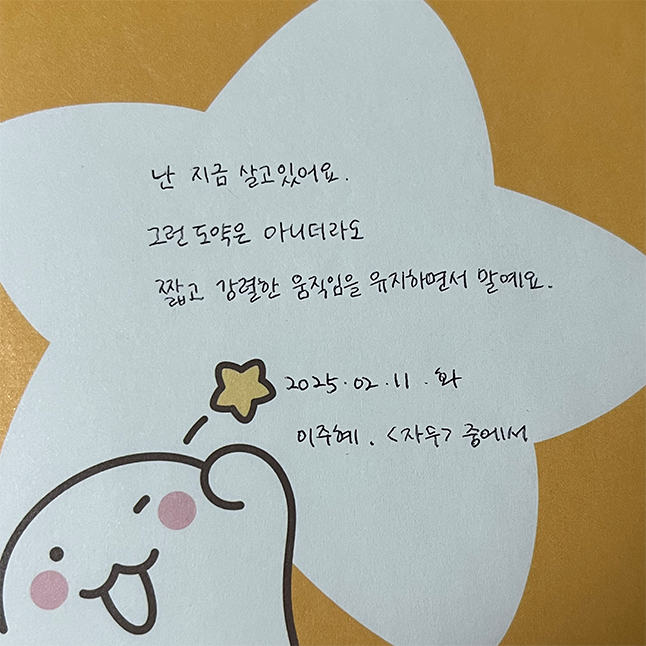 난 지금 살고있어요.
그런 도약은 아니더라도
짧고 강렬한 움직임을 유지하면서 말예요.
2025.02.11.화
이주혜. <자두> 중에서